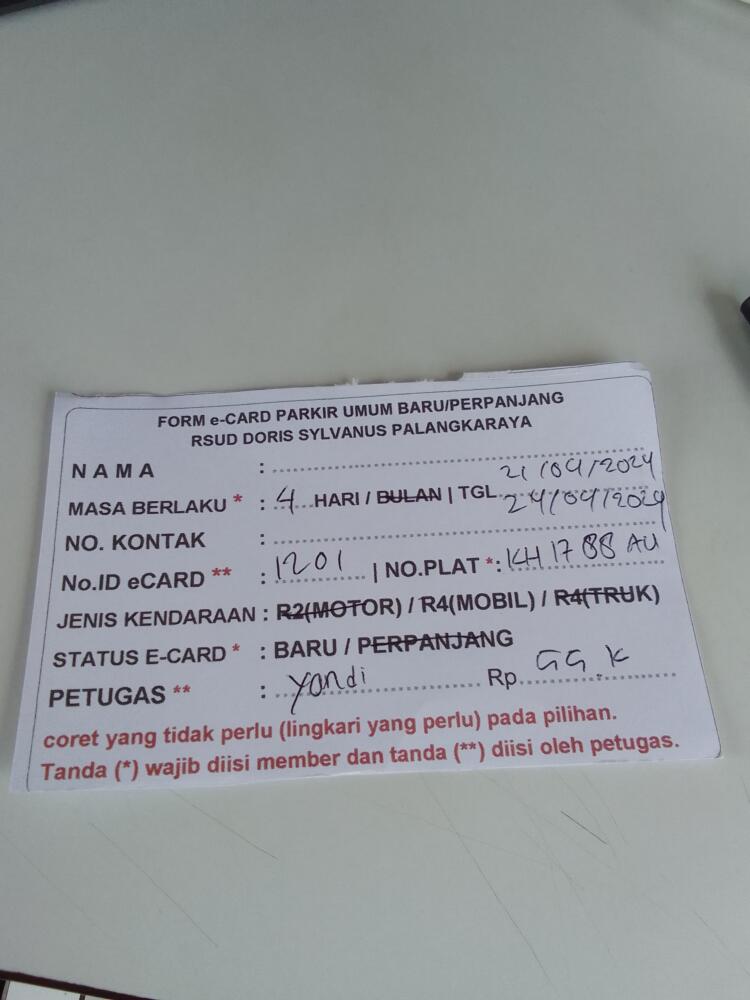 FORM e-CARD PARKIR UMUM BARU/PERPANJANG
RSUD DORIS SYLVANUS PALANGKARAYA
NAMA :
21/04/2024
MASA BERLAKU * : 4 HARI / BULAN | TGL 24/04/2024
NO. KONTAK :
No.ID eCARD ** : 1201 | NO.PLAT *: KH 1788 AU
JENIS KENDARAAN : R2(MOTOR) / R4(MOBIL) / R4(TRUK)
STATUS E-CARD * : BARU / PERPANJANG
PETUGAS ** : Yandi Rp. GG K
coret yang tidak perlu (lingkari yang perlu) pada pilihan.
Tanda (*) wajib diisi member dan tanda (**) diisi oleh petugas.